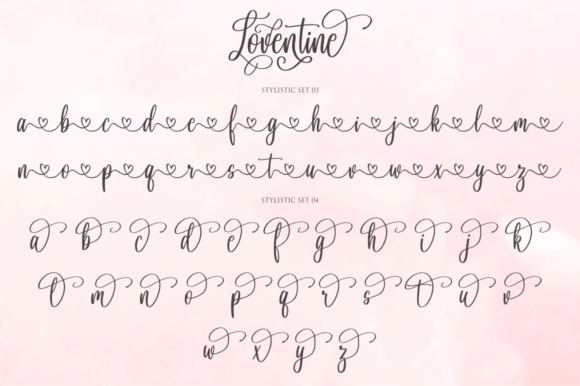 Loventine
STYLISTIC SET 03
a b c d e f g h i j k l m
n o p q r s t u v w x y z
STYLISTIC SET 04
a b c d e f g h i j k
l m n o p q r s t u v
w x y z